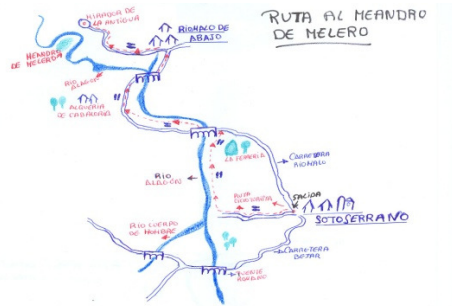 RUTA AL MEANDRO
DE MELERO
MIRADOR DE
LA ANTIGUA
RIOMALO DE
ABAJO
MEANDRO
DE MELERO
RIO
ALAGON
ALQUERIA
DE CABALORIA
LA FEMERIA
CARRETERA
RIOMALO
RIO
ALAGON
RUTA
SALIDA
SOTOSERRANO
RIO CUERPO
DE HOMBRE
CARRETERA
BEJAR
PUENTE
ROMANO